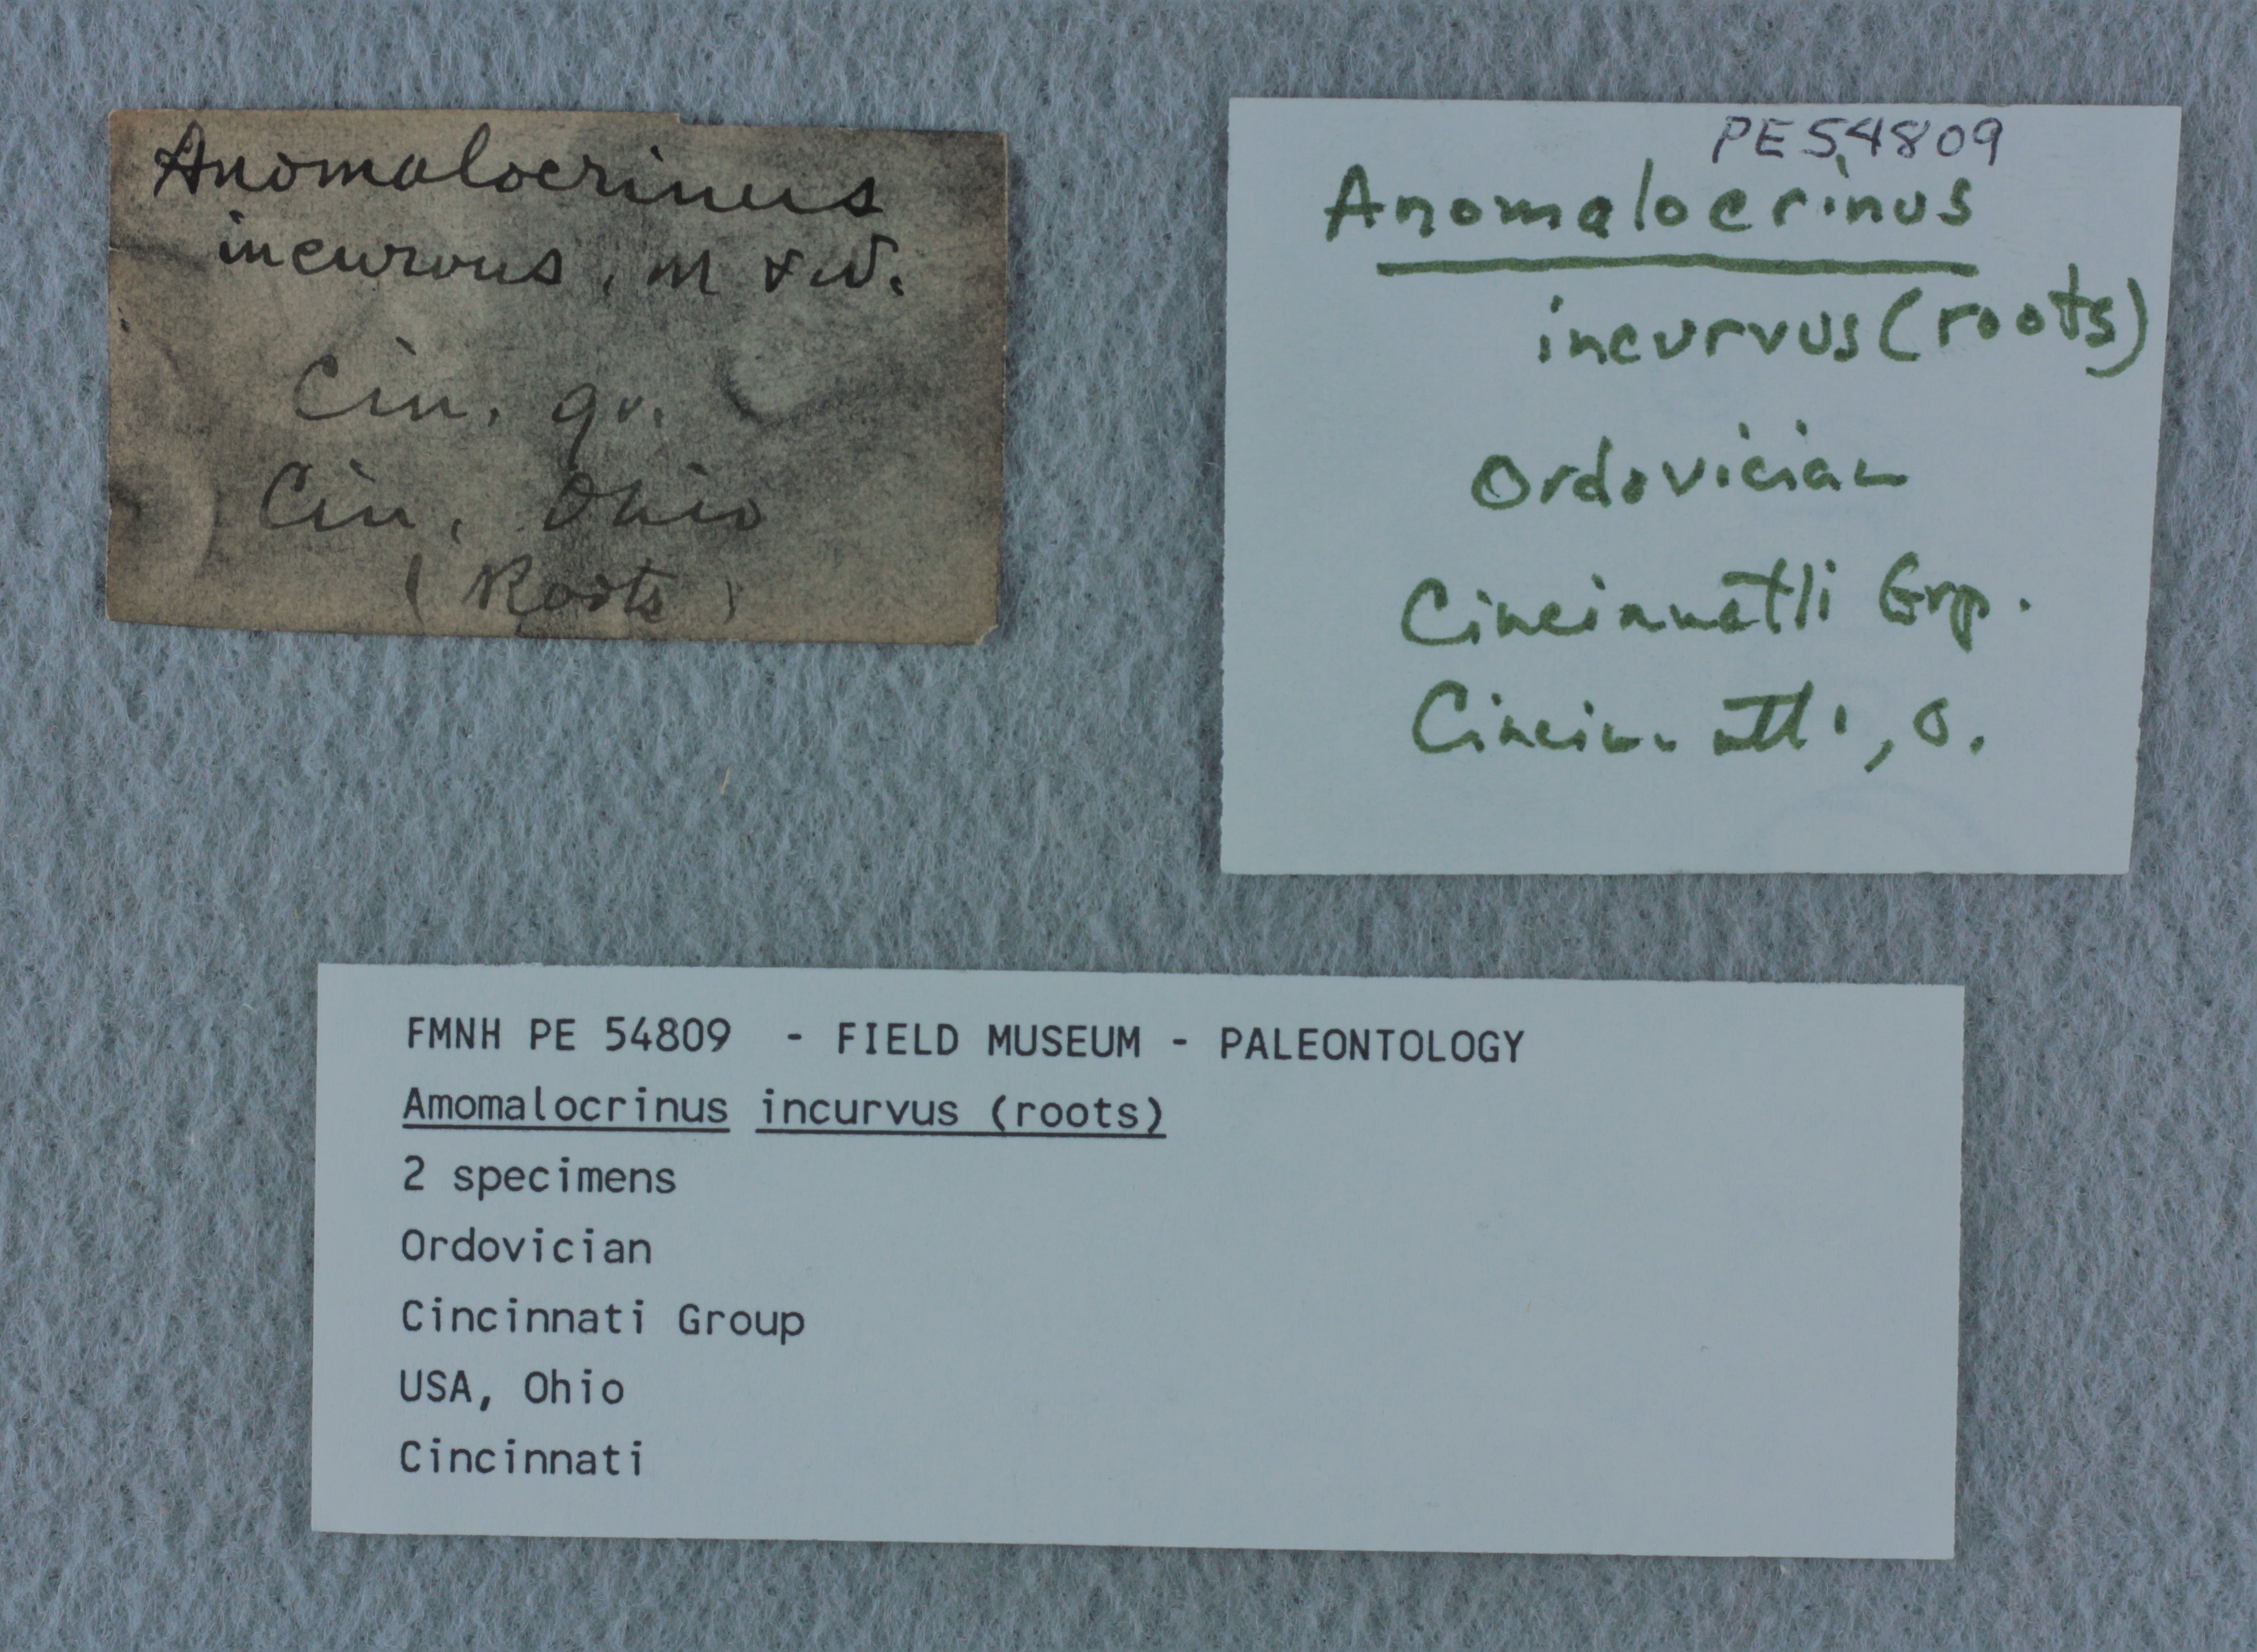 Anomalocrinus
incurvus, M & W.
Cin. gr.
Cin, Ohio
(Roots)
PE54809
Anomalocrinus
incurvus (roots)
Ordovician
Cincinnatti Grp.
Cincinnatti, O.
FMNH PE 54809 - FIELD MUSEUM - PALEONTOLOGY
Amomalocrinus incurvus (roots)
2 specimens
Ordovician
Cincinnati Group
USA, Ohio
Cincinnati